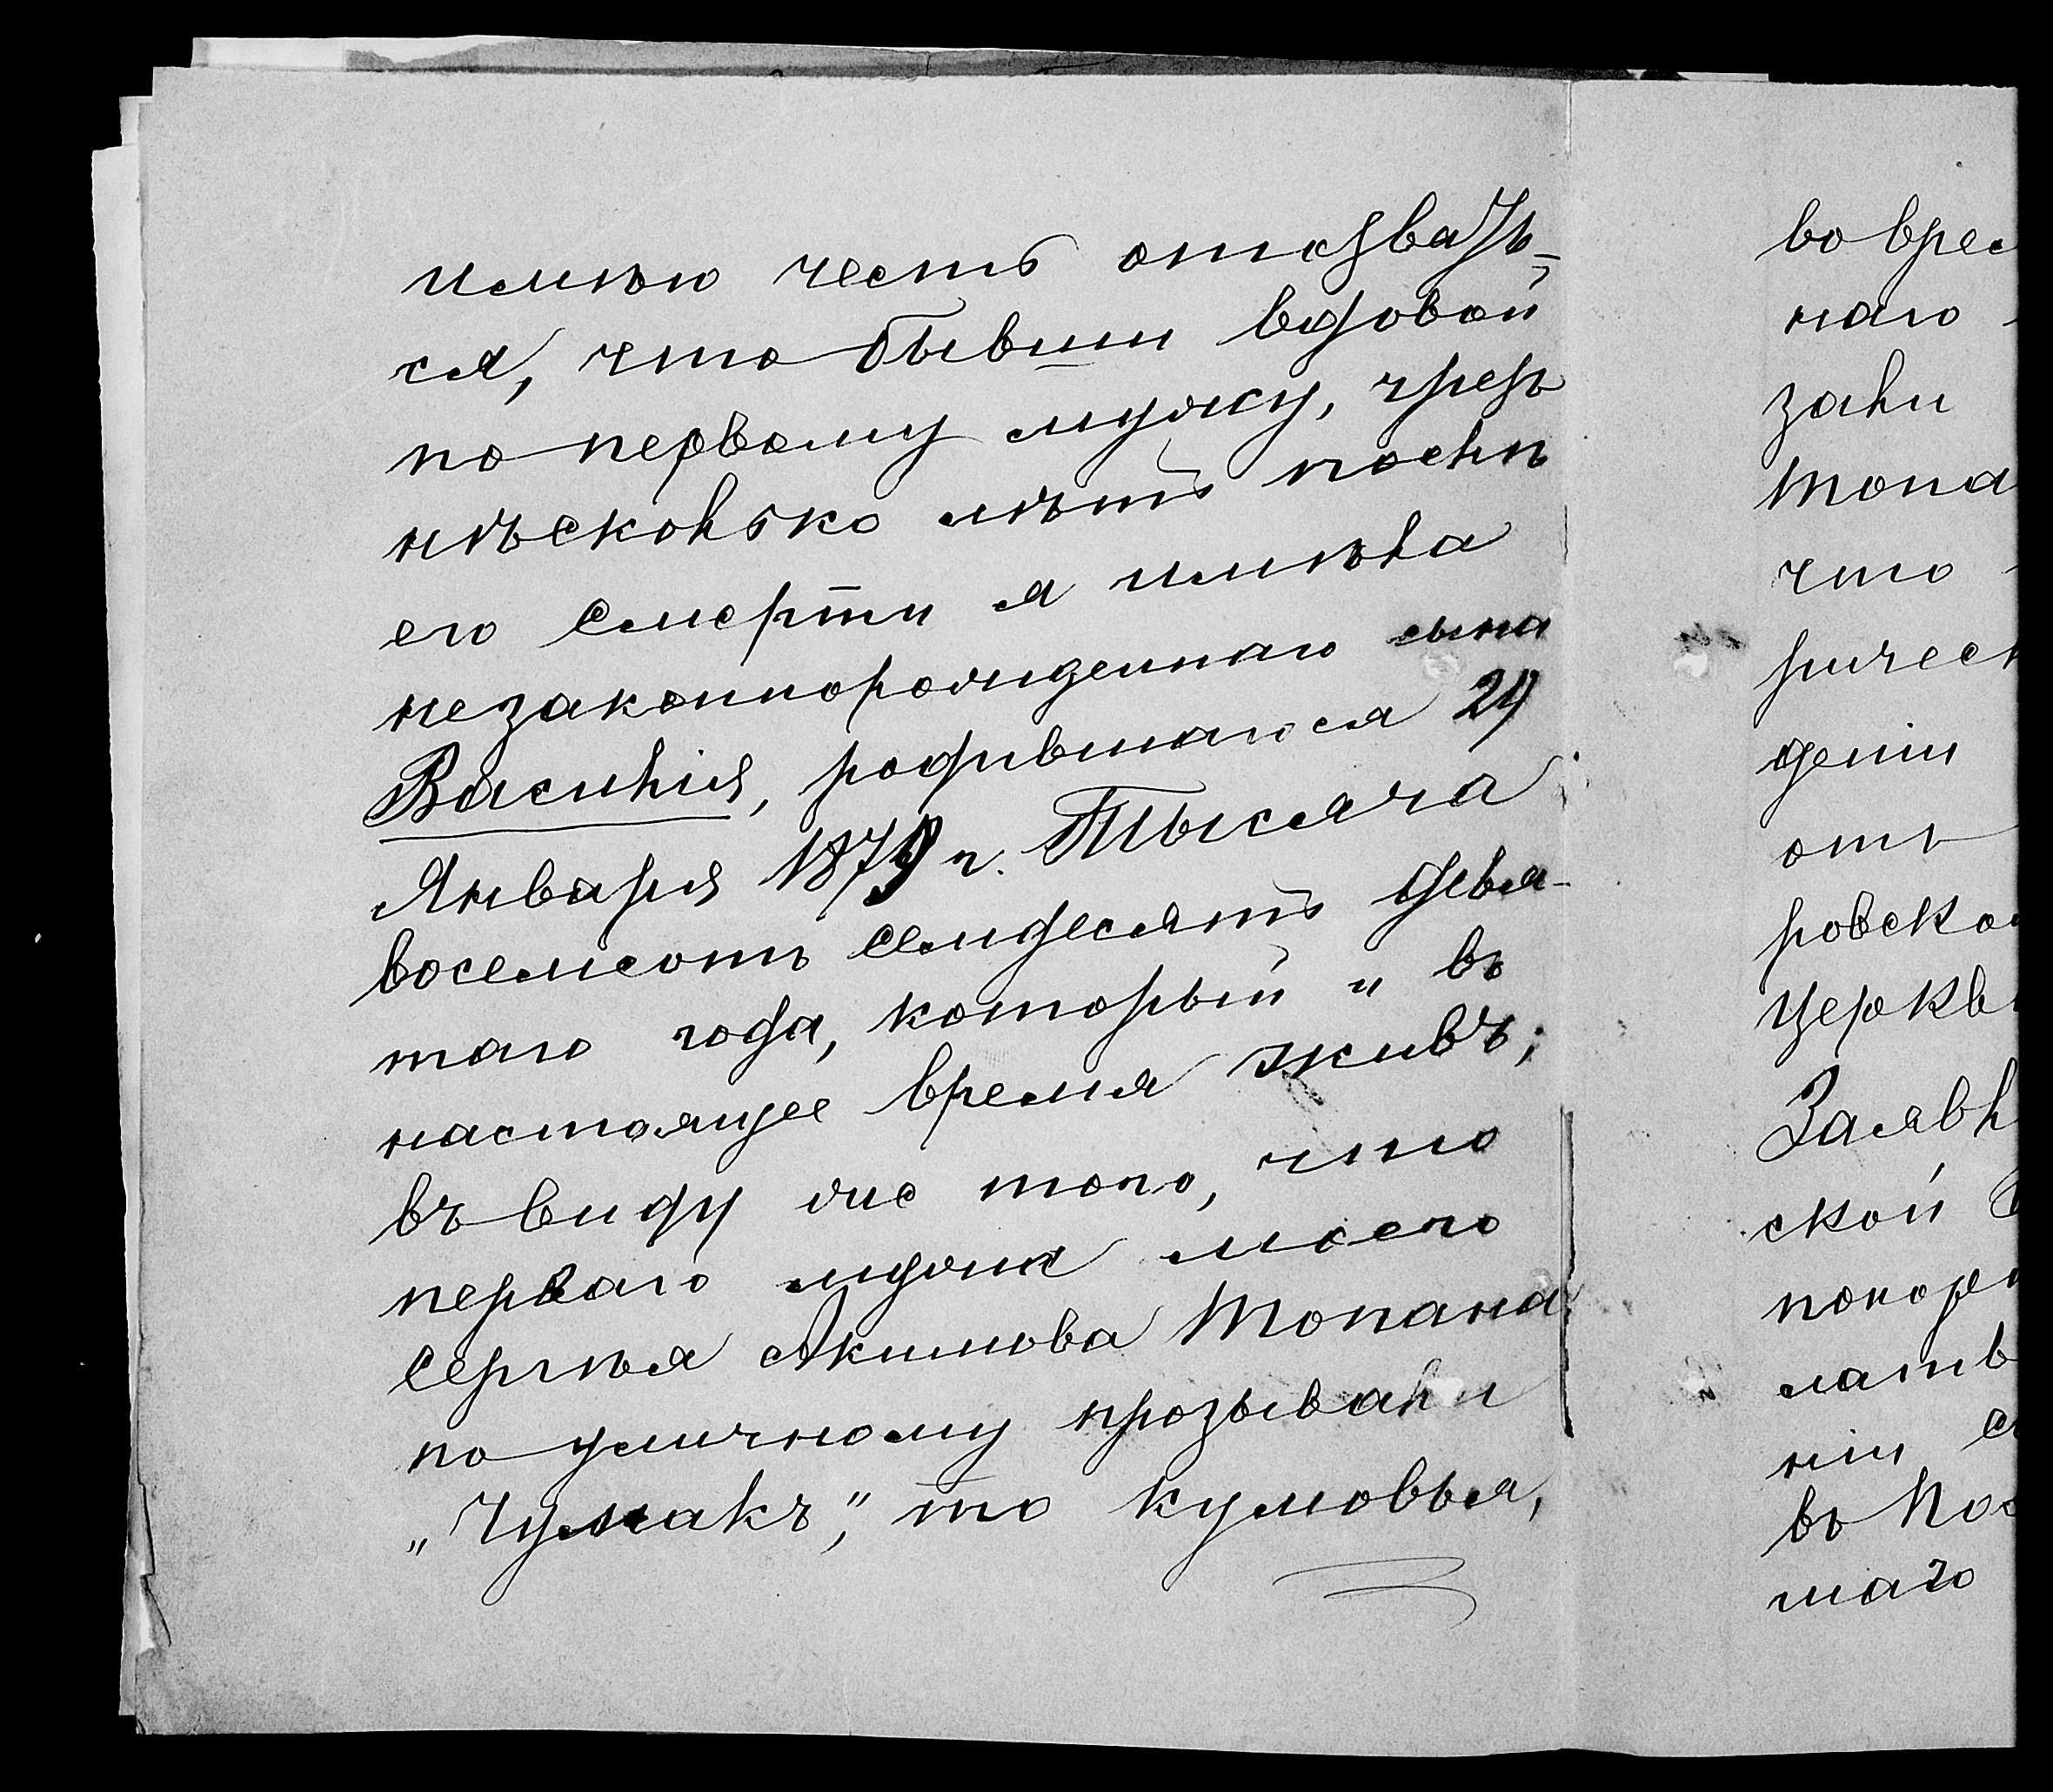 имѣю честь отозвать-
ся, что бывши вдовой
по первому мужу, чрезъ
нѣсколько лѣтъ послѣ
его смерти я имѣла
незаконнорожденнаго сына
Василія, родившагося 24
Января 1879 г. Тысяча
восемсотъ семдесятъ девя-
таго года, который и въ
настоящее время живъ;
въ виду же того, что
перваго мужа моего
Сергѣя Акимова Топана
по уличному прозывали
„Чумакъ“, то кумовья,
во врем
наго
зали
Топа
что
рическ
деніи
отъ
ровско
Церкв
Заявл
ской
покор
мать
ніи
въ По
шаго